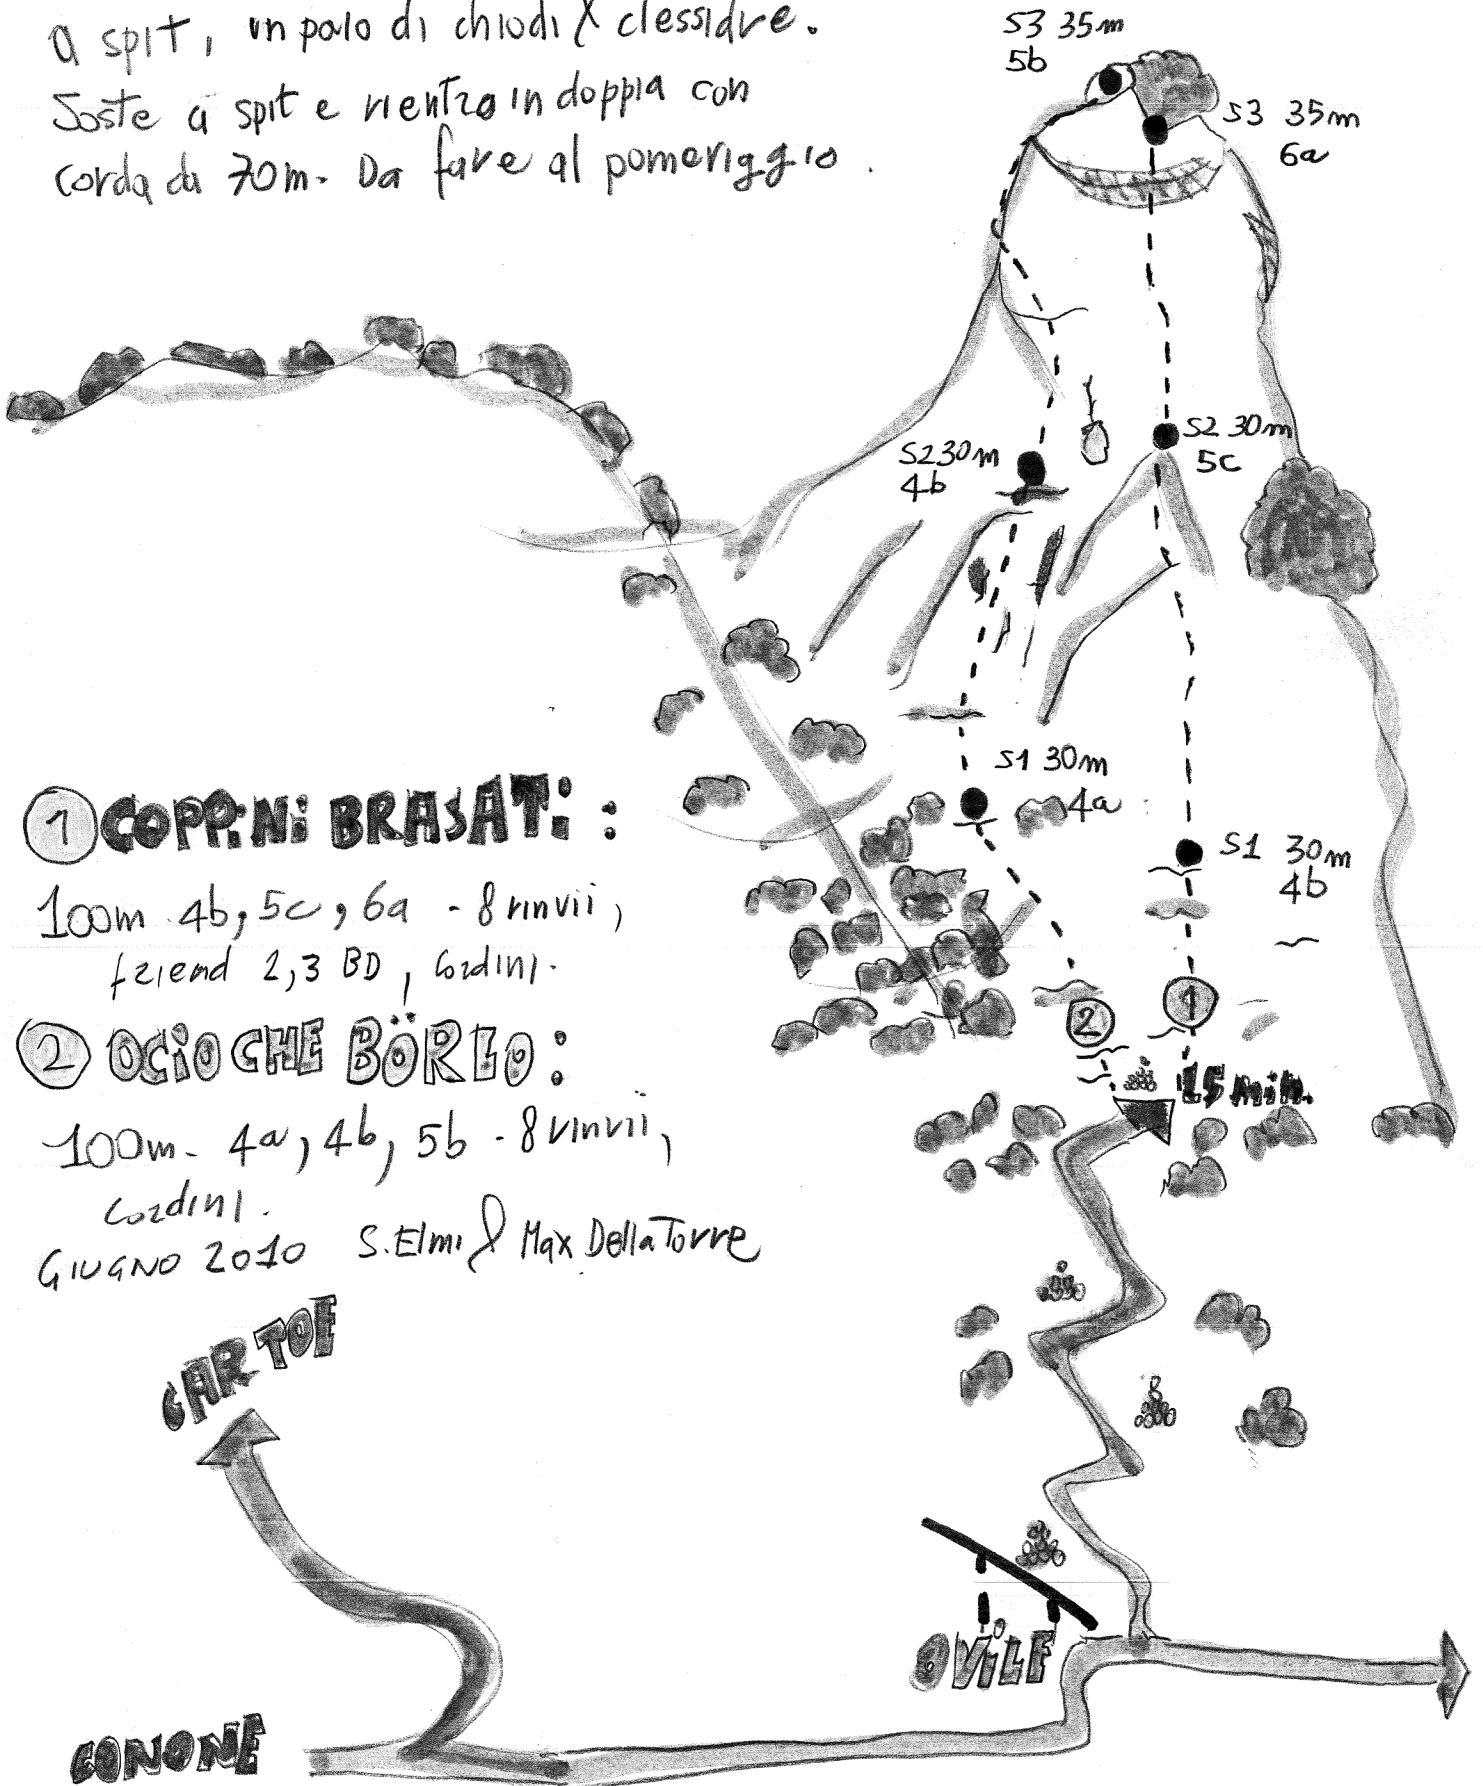 a spit, un paio di chiodi & clessidre.
Soste a spit e rientro in doppia con
corda da 70m. Da fare al pomeriggio.
S3 35m
5b
S3 35m
6a
S2 30m
4b
S2 30m
5c
S1 30m
4a
S1 30m
4b
1 COPPiNi BRASATi:
100m 4b, 5c, 6a - 8 rinvii,
friend 2,3 BD, cordini.
2 OCiO CHE BÖRLO:
100m. 4a, 4b, 5b - 8 rinvii,
cordini.
GIUGNO 2010 S. Elmi & Max Della Torre
2
1
15 min.
CAR TOF
OViLE
CONONE